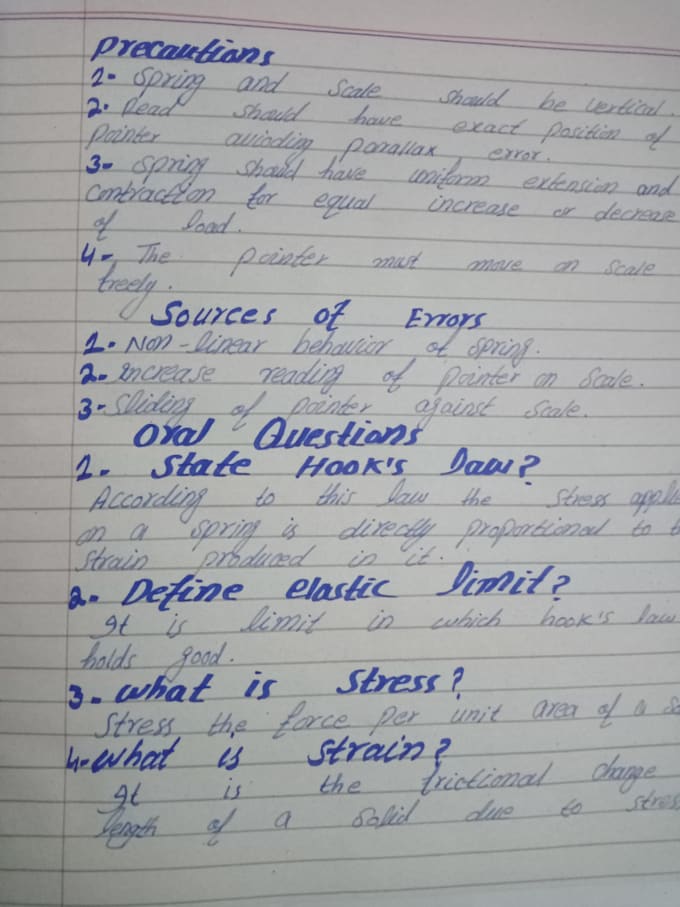 Precautions
1- Spring and Scale should be vertical.
2. Read should have exact position of
pointer avioding parallax error.
3- Spring should have uniform extension and
contraction for equal increase or decrease
of load.
4- The pointer must move on scale
freely.
Sources of Errors
1. Non-linear behavior of spring.
2- Increase reading of pointer on Scale.
3- Sliding of pointer against Scale.
Oral Questions
1. State Hook's Law?
According to this law the stress
on a spring is directly proportional to
strain produced in it.
2- Define elastic limit?
It is limit in which hook's law
holds good.
3- what is stress?
Stress the force per unit area of a
4- what is strain?
It is the frictional change
length of a solid due to stress